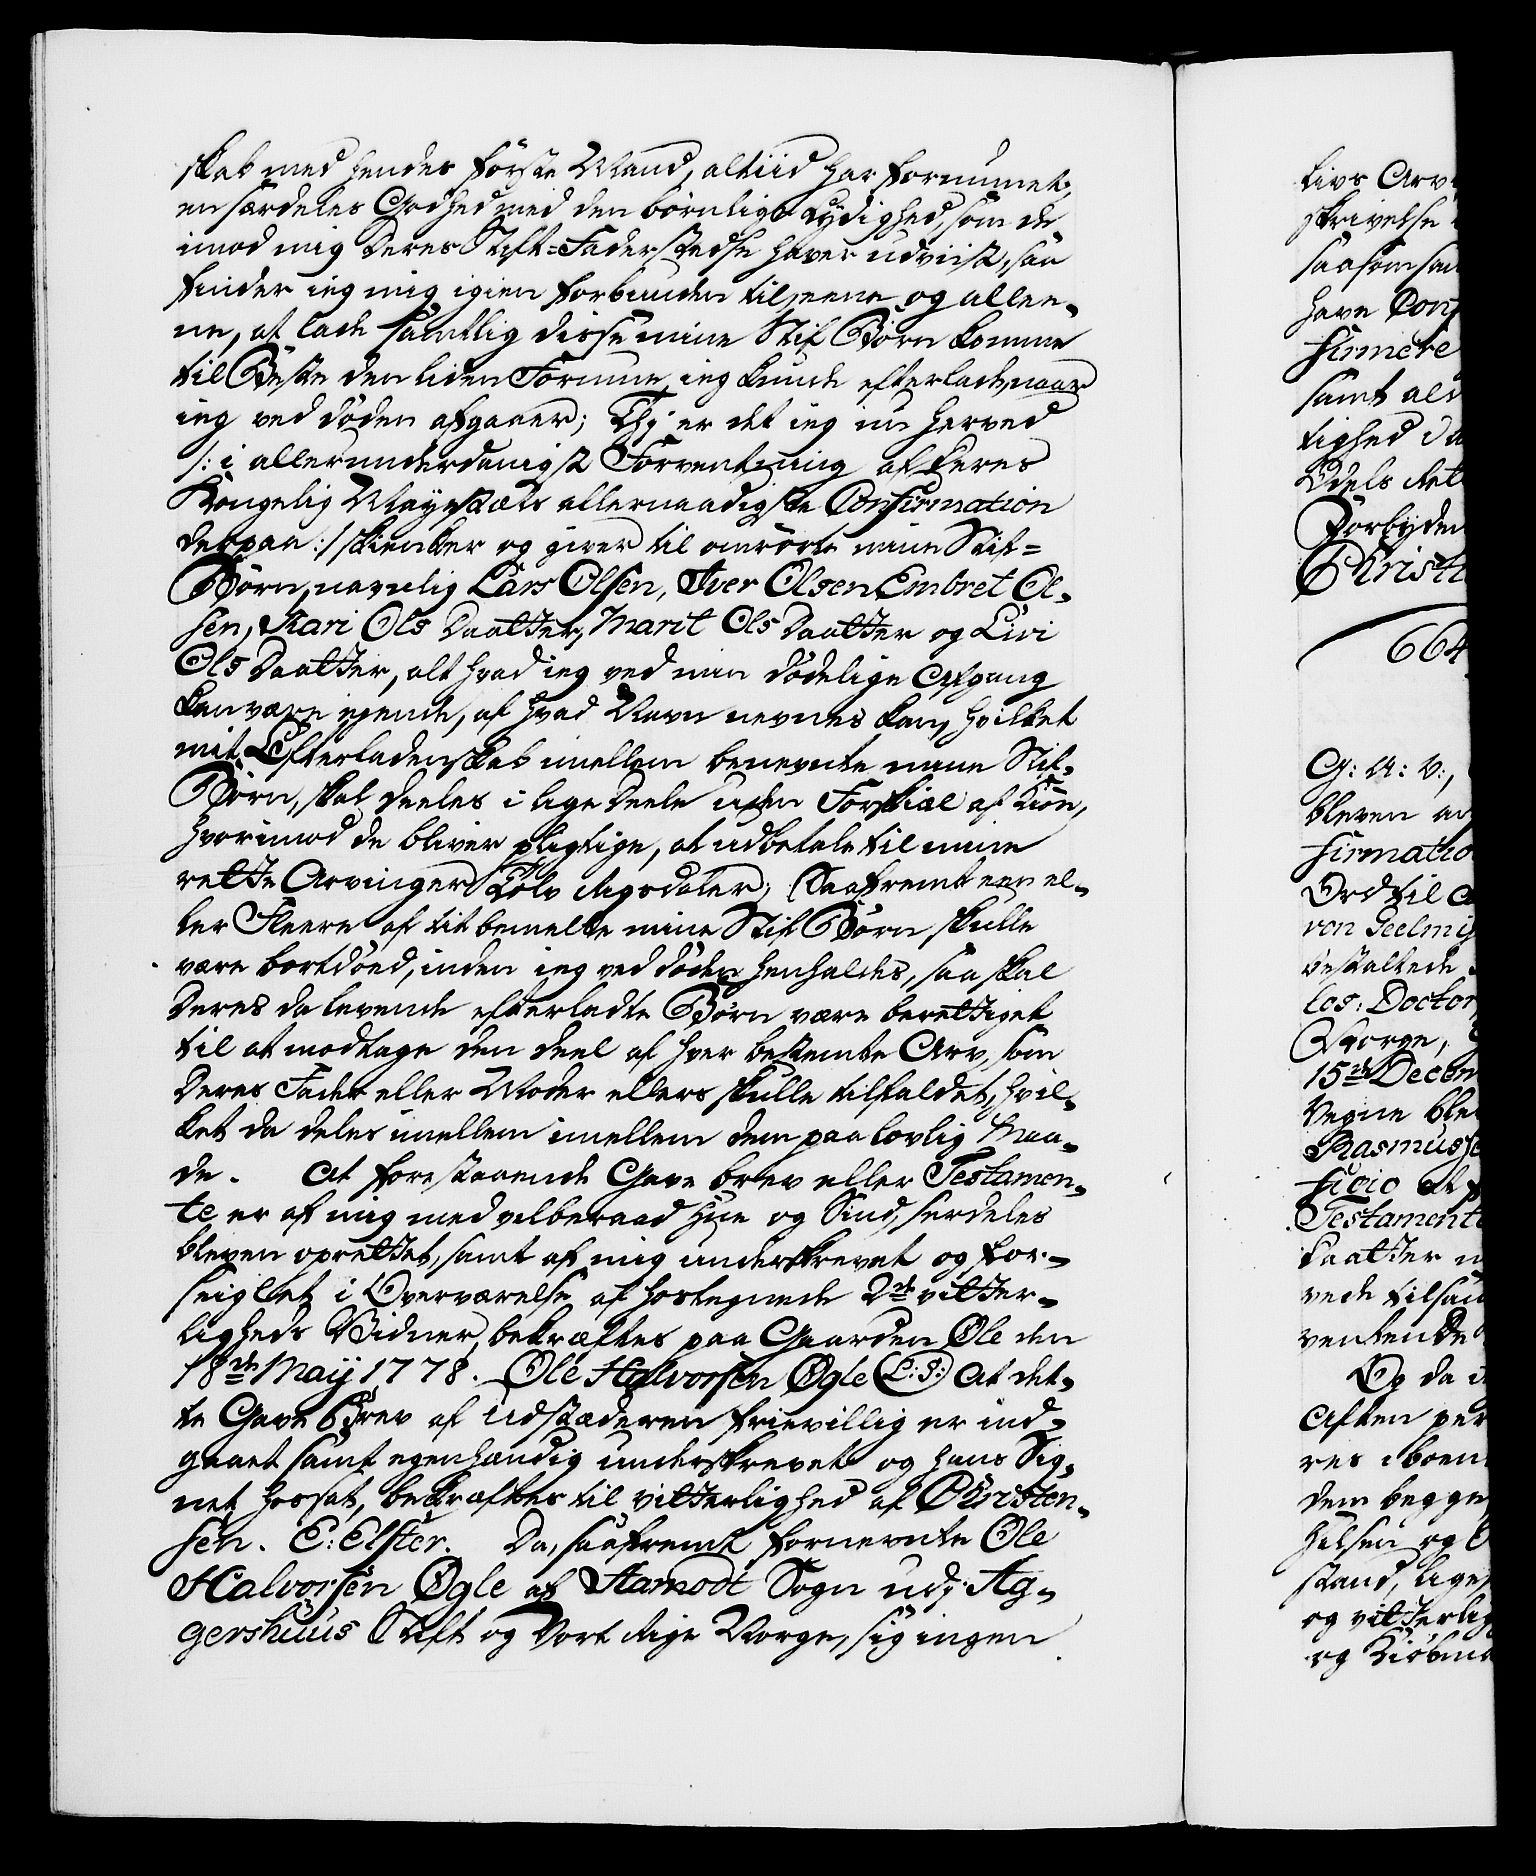 skab med hendes første Mand, altiid har fornummet,
en særdeles Godhed med den børnlige Lydighed, som de
imod mig deres Stif=Fader stedse haver udviist, saa
finder ieg mig igien forbunden til, eene og allee-
ne, at lade samtlig disse mine Stif Børn komme
til Beste den liden Formue, ieg kunde efterlade, naar
ieg ved døden afgaaer; Thi er det ieg nu herved
/: i allerunderdanigst Forventning af Deres
Kongelig Mayestæts allernaadigste Confirmation
derpaa :/ skienker og giver til omrørte mine Stif=
Børn, navnlig Lars Olsen, Iver Olsen, Embret Ol-
sen, Kari Ols Daatter, Marit Ols Daatter og Livi
Ols Daatter, alt hvad ieg ved min dødelige Afgang
kan være eyende, af hvad Navn nevnes kan, hvilket
mit Efterladenskab imellem benevnte mine Stif-
Børn, skal deeles i lige Deele uden Forskiæl af Kiøn,
hvorimod de bliver pligtige, at udbetale til mine
rette Arvinger Tolv Rigsdaler; Saafremt een el-
ler Fleere af tit bemelte mine Stif Børn skulle
være bortdöed, inden ieg ved døden henkaldes, saa skal
deres da levende efterladte Børn være berettiget
til at modtage den deel af hver bestemte Arv, som
deres Fader eller Moder ellers skulle tilfaldet, hvil-
ket da deles imellem imellem dem paa lovlig Maa-
de. At forestaaende Gave brev eller Testamen-
te er af mig med velberaad Hue og Sind, serdeles
bleven oprettet, samt af mig underskrevet og for-
seiglet i Overværelse af hostegnede 2de vitter-
ligheds Vidner, bekræftes paa Gaarden Øle den
18de Maij 1778. Ole Halvorsen Øgle (L:S:) At det-
te Gave Brev af Udstæderen frievillig er ind-
gaaet samt egenhændig underskrevet og hans Sig-
net hossat, bekræftes til vitterlighed af Christen-
sen. E: Elster. Da, saafremt fornevnte Ole
Halvorsen Øgle af Aamodt Sogn udj Ag-
gershuus Stift og Vort Rige Norge, sig ingen
livs Arv
skrivelse
saasom saa
have Con
firmere
samt al
tighed
Odels Ret
Forbyden
Christi
664
G: A: V:,
bleven an
firmatio
Ord til
von Geelmÿ
bestaltede
los: Doctor
Norge,
15de Decem
Vegne ble
Rasmusse
ficio at
Testament
Daatter
vede tilsam
ventende
Og da
Aften per
res iboen
dem begge
helsen og
stand, lige
og vitterlig
og Kiöbm